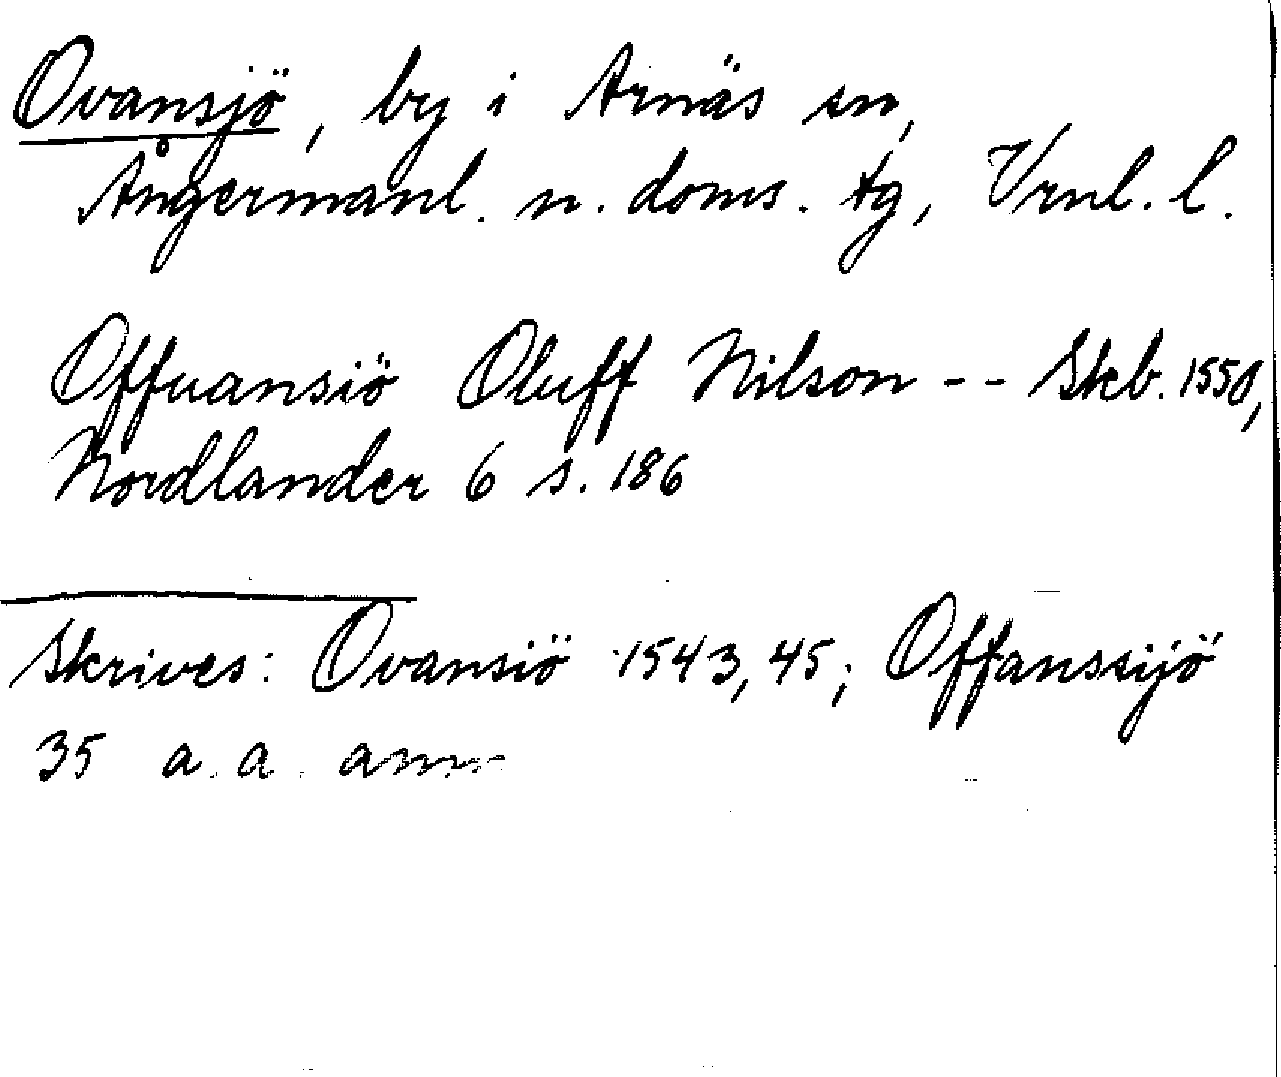 Ovansjö, by i Arnäs sn,
Ångermanl. n. doms. tg, Vrnl. l.
Offuansiö Oluff Nilson -- Skb. 1550,
Nordlander 6 s. 186
Skrives: Ovansiö 1543, 45; Offanssijö
35 a. a. anm